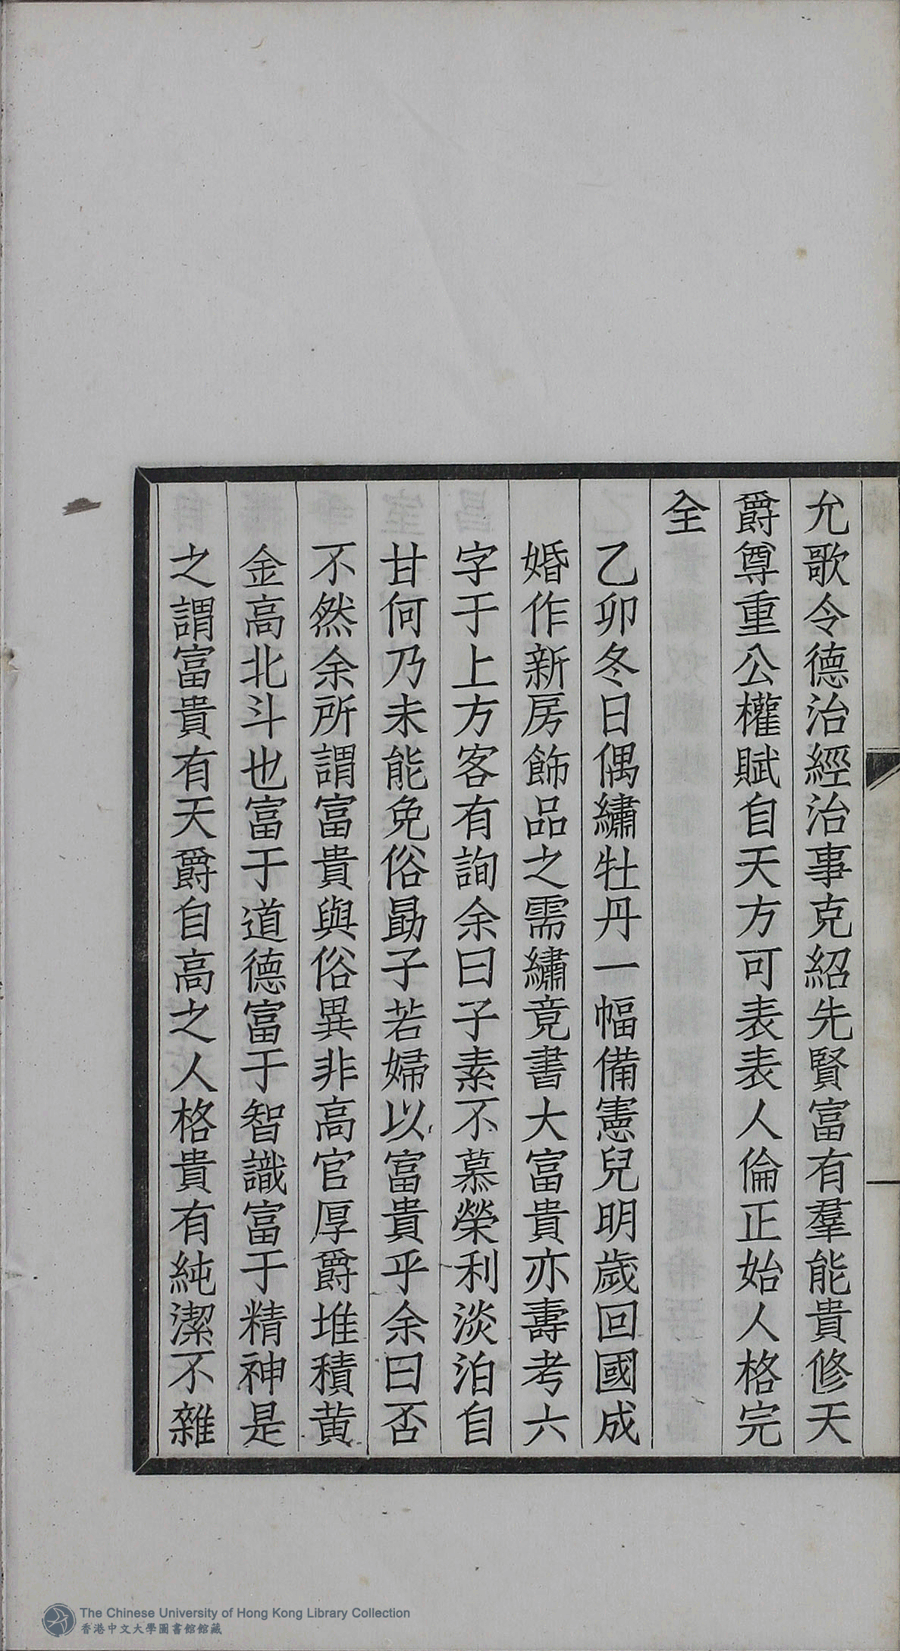 允歌令德治經治事克紹先賢富有羣能貴修天
爵尊重公權賦自天方可表表人倫正始人格完
全
乙卯冬日偶繡牡丹一幅備憲兒明歲回國成
婚作新房飾品之需繡竟書大富貴亦壽考六
字于上方客有詢余曰子素不慕榮利淡泊自
甘何乃未能免俗勗子若婦以富貴乎余曰否
不然余所謂富貴與俗異非高官厚爵堆積黄
金高北斗也富于道德富于智識富于精神是
之謂富貴有天爵自高之人格貴有純潔不雜
The Chinese University of Hong Kong Library Collection
香港中文大學圖書館館藏